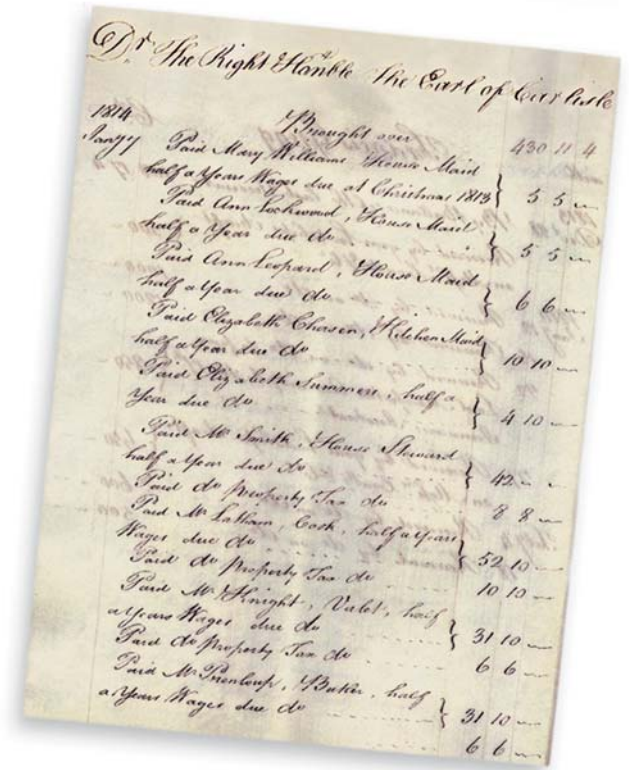 Dr. The Right Honble The Earl of Carlisle
1814 Brought over 430 11 4
Jany Paid Mary Williams House Maid
half a Years Wages due at Christmas 1813 } 5 5 —
Paid Ann Lockwood, House Maid
half a Year due do } 5 5 —
Paid Ann Leopard, House Maid
half a Year due do } 6 6 —
Paid Elizabeth Chasen, Kitchen Maid
half a Year due do } 10 10 —
Paid Elizabeth Summers, half a
Year due do } 4 10 —
Paid Mr Smith, House Steward
half a Year due do } 42 - -
Paid do Property Tax do 8 8 —
Paid Mr Latham, Cook, half a Years
Wages due do } 52 10 —
Paid do Property Tax do 10 10 —
Paid Mr Knight, Valet, half
a Years Wages due do } 31 10 —
Paid do Property Tax do 6 6 —
Paid Mr, Baker, half
a Years Wages due do } 31 10 —
6 6 —